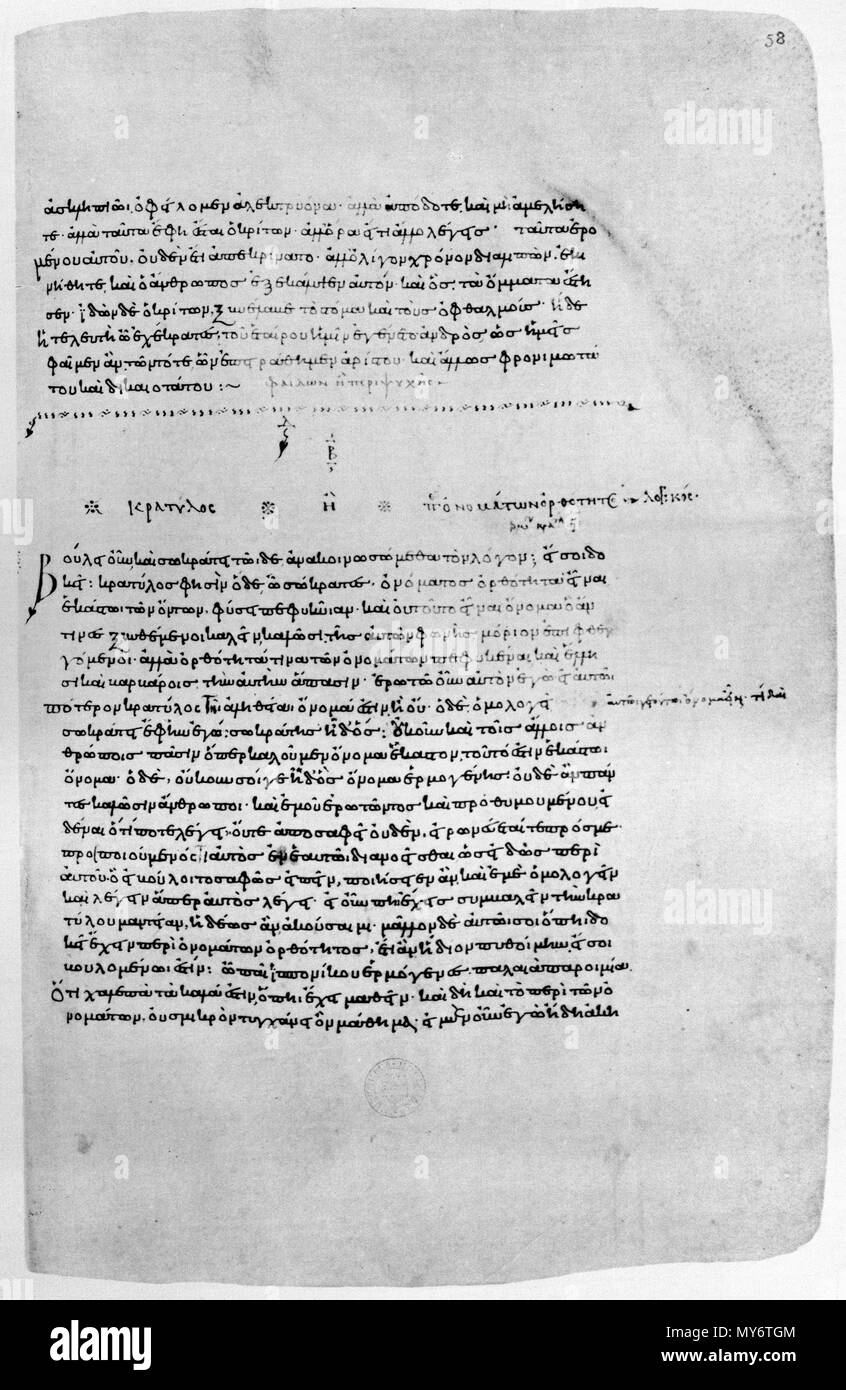 58
ἀσκληπιῶι, ὀφείλομεν ἀλεκτρυόνα· ἀλλὰ ἀπόδοτε, καὶ μὴ ἀμελήση
τε· ἀλλὰ ταῦτα ἔφη ἔσται ὁ κρίτων· ἀλλ' ὅρα εἴ τι ἄλλο λέγεις· ταῦτα ἐρο
μένου αὐτοῦ, οὐδὲν ἔτι ἀπεκρίνατο· ἀλλ' ὀλίγον χρόνον διαλιπὼν, ἐκι
νήθη τε, καὶ ὁ ἄνθρωπος ἐξεκάλυψεν αὐτὸν· καὶ ὃς τὰ ὄμματα ἔστη
σεν· ἰδὼν δὲ ὁ κρίτων, ξυνέλαβε τὸ στόμα καὶ τοὺς ὀφθαλμούς· ἥδε
ἡ τελευτὴ ὦ ἐχέκρατες, τοῦ ἑταίρου ἡμῖν ἐγένετο ἀνδρὸς, ὡς ἡμεῖς
φαῖμεν ἂν, τῶν τότε ὧν ἐπειράθημεν ἀρίστου· καὶ ἄλλως φρονιμωτά
του καὶ δικαιοτάτου:~ φαίδων ἢ περὶ ψυχῆς
Β
ΚΡΑΤΥΛΟΣ Ἢ ὀνομάτων ὀρθότητος λογικός·
Βούλει οὖν καὶ σωκράτει τῶιδε ἀνακοινωσώμεθα τὸν λόγον; εἴ σοι δο
κεῖ: κρατύλος φησὶν ὅδε ὦ σώκρατες, ὀνόματος ὀρθότητα εἶναι
ἑκάστωι τῶν ὄντων, φύσει πεφυκυῖαν· καὶ οὐ τοῦτο εἶναι ὄνομα ὃ ἄν
τινες ξυνθέμενοι καλεῖν καλῶσι, τῆς αὑτῶν φωνῆς μόριον ἐπιφθεγ
γόμενοι· ἀλλὰ ὀρθότητά τινα τῶν ὀνομάτων πεφυκέναι καὶ ἕλλη
σι καὶ βαρβάροις τὴν αὐτὴν ἅπασιν· ἐρωτῶ οὖν αὐτὸν ἐγὼ εἰ αὐτῶι
πότερον κρατύλος τῆι ἀληθείαι ὄνομά ἐστιν ἢ οὔ· ὁ δὲ, ὁμολογεῖ
σωκράτει ἔφην ἐγώ; σωκράτης ἦ δ' ὅς; οὐκοῦν καὶ τοῖς ἄλλοις ἀν
θρώποις πᾶσιν ὅπερ καλοῦμεν ὄνομα ἕκαστον, τοῦτό ἐστιν ἑκάστωι
ὄνομα· ὁ δὲ, οὔκουν σοί γε ἦ δ' ὃς ὄνομα ἑρμογένης· οὐδὲ ἂν πάν
τες καλῶσιν ἄνθρωποι· καὶ ἐμοῦ ἐρωτῶντος καὶ προθυμουμένου εἰ
δέναι ὅτι ποτὲ λέγει, οὔτε ἀποσαφεῖ οὐδὲν, εἰρωνεύεταί τε πρός με·
προσποιούμενός τι αὐτὸς ἐν ἑαυτῶι διανοεῖσθαι ὡς εἰδὼς περὶ
αὐτοῦ· ὃ εἰ βούλοιτο σαφῶς εἰπεῖν, ποιήσειεν ἂν, καὶ ἐμὲ ὁμολογεῖν
καὶ λέγειν ἅπερ αὐτὸς λέγει· εἰ οὖν πηι ἔχεις συμβαλεῖν τὴν κρα
τύλου μαντείαν, ἡδέως ἂν ἀκούσαιμι· μᾶλλον δὲ αὐτῶι σοι ὅπηι δο
κεῖ ἔχειν περὶ ὀνομάτων ὀρθότητος, ἔτι ἂν ἥδιον πυθοίμην, εἴ σοι
βουλομένωι ἐστίν: ὦ παῖ ἱππονίκου ἑρμόγενες, παλαιὰ παροιμία·
ὅτι χαλεπὰ τὰ καλά ἐστιν, ὅπηι ἔχει μαθεῖν· καὶ δὴ καὶ τὸ περὶ τῶν ὀ
νομάτων, οὐ σμικρὸν τυγχάνει ὂν μάθημα· εἰ μὲν οὖν ἐγὼ ἤδη ἀκη
alamy
Image ID: MY6TGM
www.alamy.com